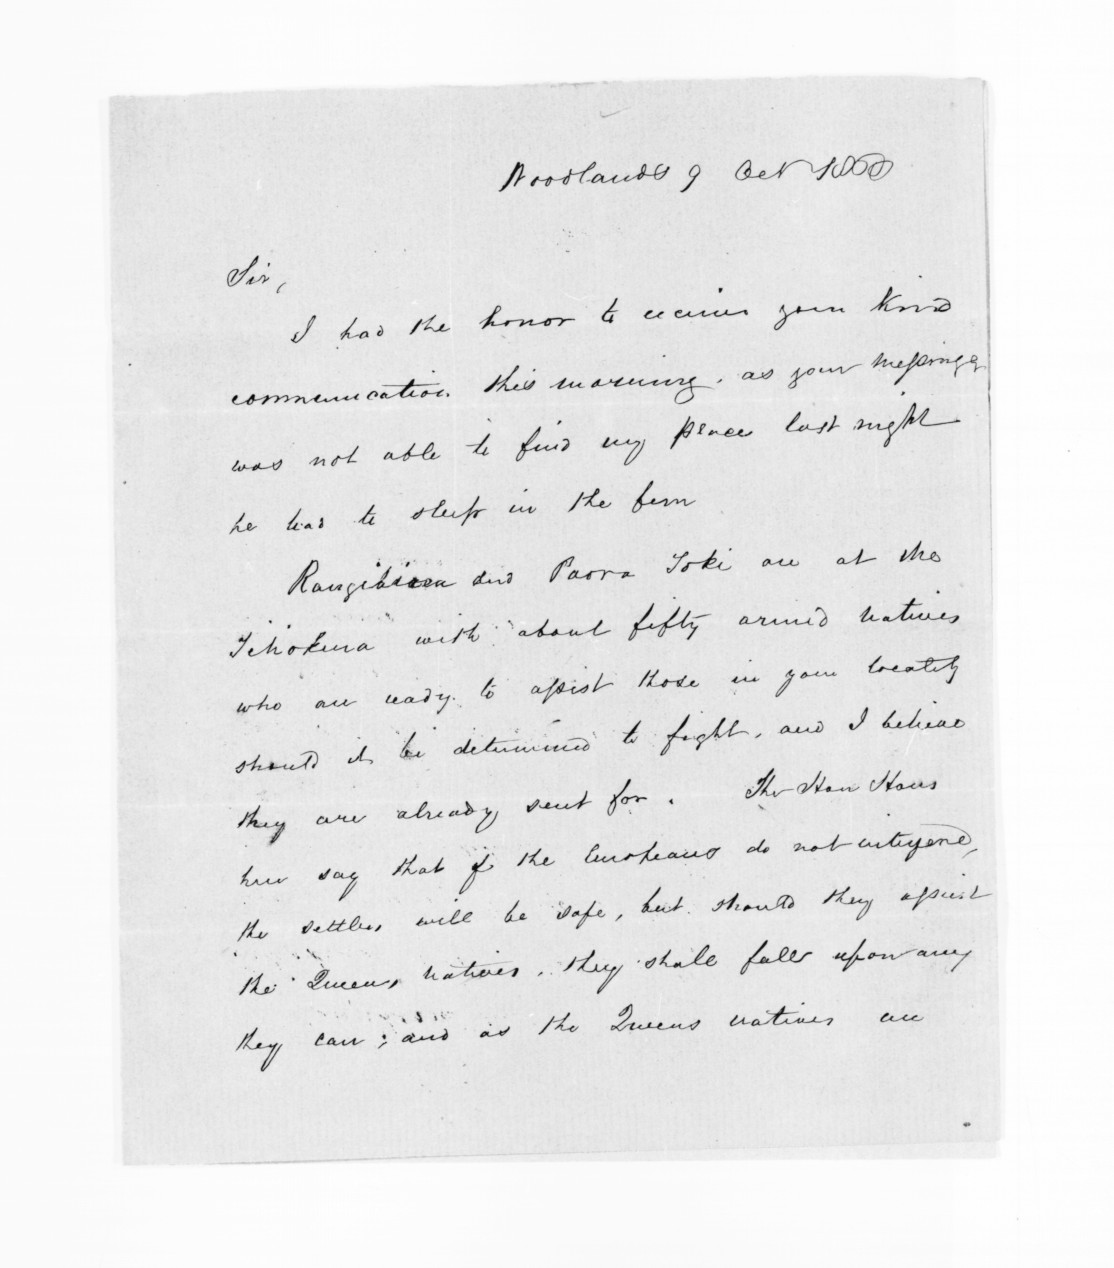 Woodlands 9 Oct
Sir,
I had the honor to receive your Kind
communication this morning. as your messinger
was not able to find my place last night
he had to sleep in the fern
and Paora Toki are at the
with about fifty armed natives
who are ready to assist those in your locality
should it be determined to fight. and I believe
they are already sent for. The Hau Haus
here say that if the Europeans do not interfere,
the settlers will be safe, but should they assist
the Queens natives. they shall fall upon any
they can; and as the Queens natives are